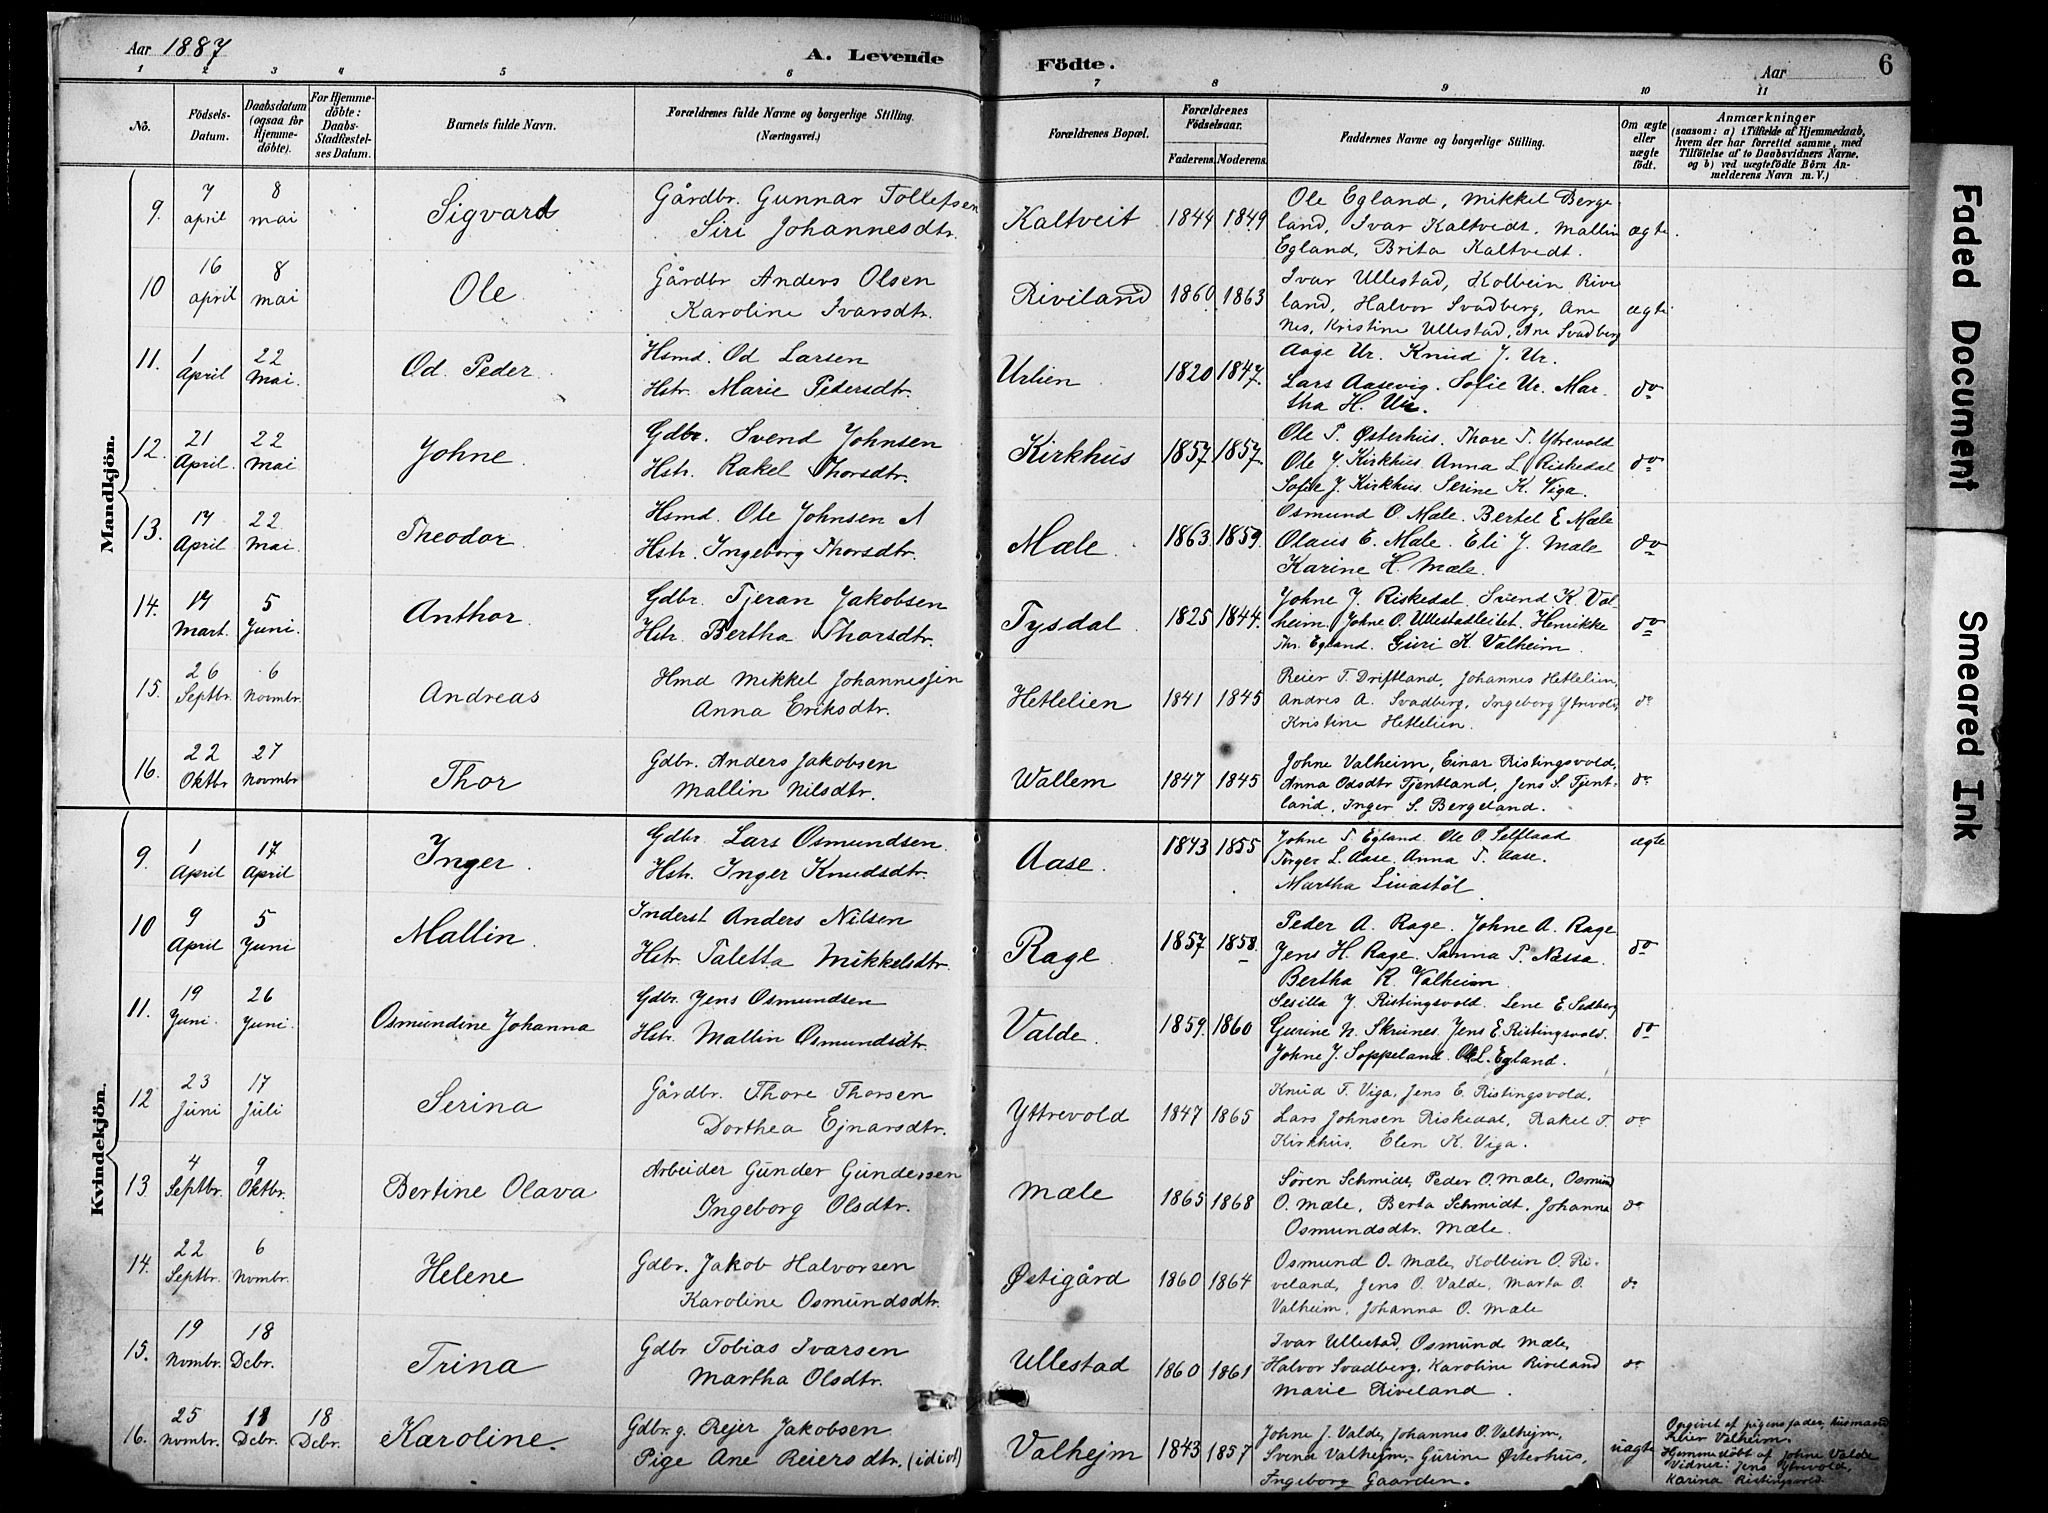 Aar 1887
A. Levende Födte.
Aar
6
1 2 3 4 5 6 7 8 9 10 11
No.
Födsels-Datum.
Daabsdatum (ogsaa for Hjemme-döbte).
For Hjemme-döbte: Daabs-Stadfæstel-ses Datum.
Barnets fulde Navn.
Forældrenes fulde Navne og borgerlige Stilling. (Næringsvei.)
Forældrenes Bopæl.
Forældrenes Födselsaar.
Faderens. Moderens.
Faddernes Navne og borgerlige Stilling.
Om ægte eller uægte födt.
Anmærkninger
(saasom: a) i Tilfælde af Hjemmedaab, hvem der har forrettet samme, med Tilföielse af to Daabsvidners Navne. og b) ved uægtefödte Börn An-melderens Navn m. V.)
Mandkjön.
9. 7 april 8 mai Sigvard Gårdbr. Gunnar Tollefsen
Siri Johannesdtr. Kaltveit 1844 1849 Ole Egland, Mikkel Berge
land, Ivar Kaltvedt, Mallin
Egland, Brita Kaltvedt. ægte.
10 16 april 8 mai Ole. Gårdbr Anders Olsen
Karoline Ivarsdtr. Riviland 1860 1863 Ivar Ullestad, Kolbein Rive
land, Halvor Svadberg, Ane
Nes, Kristine Ullestad, Ane Svadberg ægte
11. 1 April 22 Mai. Od. Peder. Hsmd. Od Larsen
Hstr. Marie Pedersdtr. Urlien 1820 1847. Aage Ur. Knud J. Ur.
Lars Aasevig. Sofie Ur. Mar-
tha H. Ur. do
12. 21 April. 22 Mai Johne. Gdbr. Svend Johnsen
Hstr. Rakel Thorsdtr. Kirkhus 1857 1857. Ole T. Østerhus. Thore T. Ytrevold
Ole J. Kirkhus. Anna L. Riskedal
Sofie J. Kirkhus. Serine K. Viga. do
13. 17 April 22 Mai. Theodor. Hsmd. Ole Johnsen
Hstr. Ingeborg Thorsdtr. Mæle. 1863. 1859. Osmund O. Mæle. Bertel E Mæle
Olaus E. Mæle. Eli J. Mæle
Karine H. Mæle. do
14. 17 Mart. 5 Juni. Anthor. Gdbr. Tjeran Jakobsen
Hstr. Bertha Thorsdtr. Tysdal 1825 1844. Johne J. Riskedal. Svend K. Val-
heim. Johne O. Ullestadleitet. Henrikke
Thr. Egland. Guri K. Valheim. do
15. 26 Septbr. 6 Novmbr. Andreas Hmd Mikkel Johannesjen
Anna Eriksdtr. Hetlelien 1841 1845 Reier T. Driftland, Johannes Hetlelien,
Andres A. Svadberg, Ingeborg Ytrevold,
Kristine Hetlelien. do
16. 22 Oktbr 27 Novmbr Thor Gdbr. Anders Jakobsen
Mallin Nilsdtr. Wallem 1847 1845 Johne Valheim, Einar Ristingsvold,
Anna Odsdtr Tjentland, Jens S. Tjent-
land, Inger S. Bergeland. do
Kvindekjön.
9. 1 April 17 April Inger. Gdbr Lars Osmundsen.
Hstr. Inger Knudsdtr. Aase. 1843 1855 Johne T. Egland. Ole O.
Torger L. Aase. Anna T. Aase.
Martha ægte
10 9 April 5 Juni Mallin. Inderst Anders Nilsen
Hstr. Taletta Mikkelsdtr. Rage. 1857 1858. Peder A. Rage. Johne A. Rage
Jens H. Rage. Sanna P. Nessa.
Bertha R. Valheim. do
11. 19 Juni. 26 Juni. Osmundine Johanna Gdbr. Jens Osmundsen
Hstr. Mallin Osmundsdtr. Valde. 1859. 1860 Sesilla J. Ristingsvold. Lene E. Sedberg
Gurine N. Skrines. Jens E. Ristingsvold.
Johne J. Soppeland. Ole L. Egland. do
12 23 Juni 17 Juli Serina Gårdbr. Thore Thorsen
Dorthea Ejnarsdtr. Yttrevold 1847 1865 Knud T. Viga, Jens E. Ristingsvold,
Lars Johnsen Riskedal, Rakel T.
Kirkhus, Elen K. Viga. do
13 4 Septbr. 9 Oktbr. Bertine Olava Arbeider Gunder Gundersen
Ingeborg Olsdtr. Mæle 1865 1868 Søren Schmidt, Peder O. Mæle, Osmund
O. Mæle, Berta Schmidt, Johanna
Osmundsdtr. Mæle. do
14. 22 Septbr. 6 Novmbr. Helene Gdbr. Jakob Halvorsen
Karoline Osmundsdtr. Østigård 1860 1864 Osmund O. Mæle, Kolbein O. Ri-
veland, Jens O. Valde, Marta O.
Valheim, Johanna O. Mæle do
15. 19 Novmbr. 18 Dcbr. Trina Gdbr Tobias Ivarsen
Martha Olsdtr. Ullestad 1860 1861 Ivar Ullestad, Osmund Mæle,
Halvor Svadberg, Karoline Riveland
Marie Riveland. do
16. 25 Novmbr. 18 Dcbr. 18 Dcbr. Karoline. Gdbr.g. Rejer Jakobsen
Pige Ane Reiersdtr. (idiot) Valhejm 1843 1857 Johne J. Valde, Johannes O. Valhejm,
Svend Valhejm, Gurine Østerhus,
Ingeborg Gaarden. uægte Opgivet af pigens fader, husmand
Reier Valheim.
Hjemmedöbt af Johne Valde
Vidner: Jens Ytrevold,
Karina Ristingsvold.
Faded Document
Smeared Ink